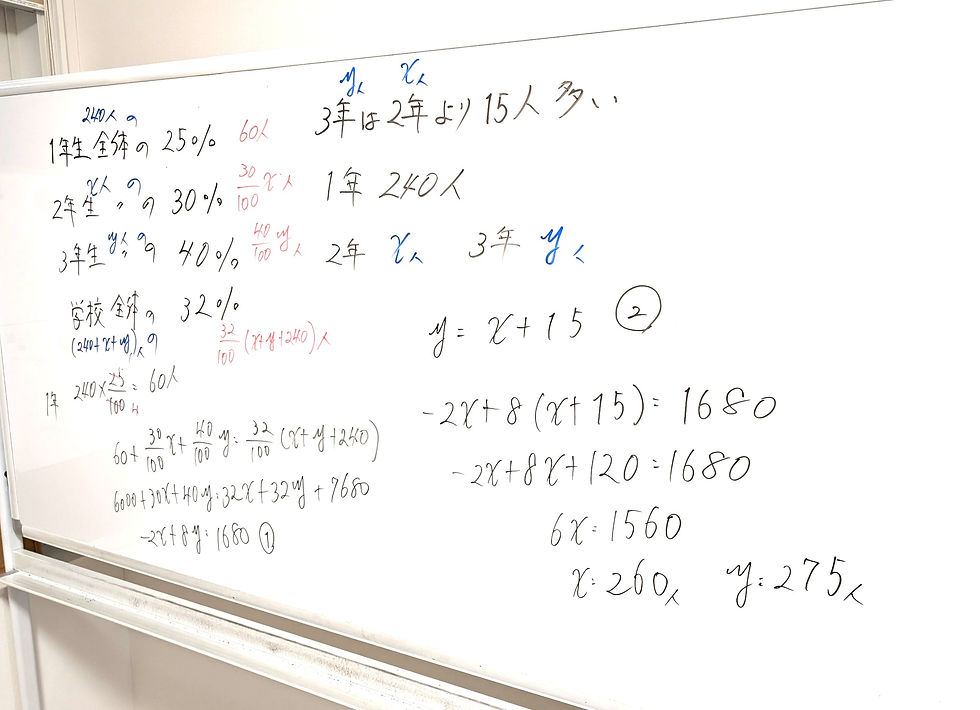 240人の
1年生全体の 25% 60人
x人の
2年生 〃 の 30% 30/100 x人
y人の
3年生 〃 の 40% 40/100 y人
学校全体の 32%
(240+x+y)人の 32/100 (x+y+240)人
1年 240×25/100=60人
60+30/100x+40/100y=32/100(x+y+240)
6000+30x+40y=32x+32y+7680
-2x+8y=1680 ①
y人 x人
3年は2年より15人多い
1年 240人
2年 x人 3年 y人
y=x+15 ②
-2x+8(x+15)=1680
-2x+8x+120=1680
6x=1560
x=260人 y=275人